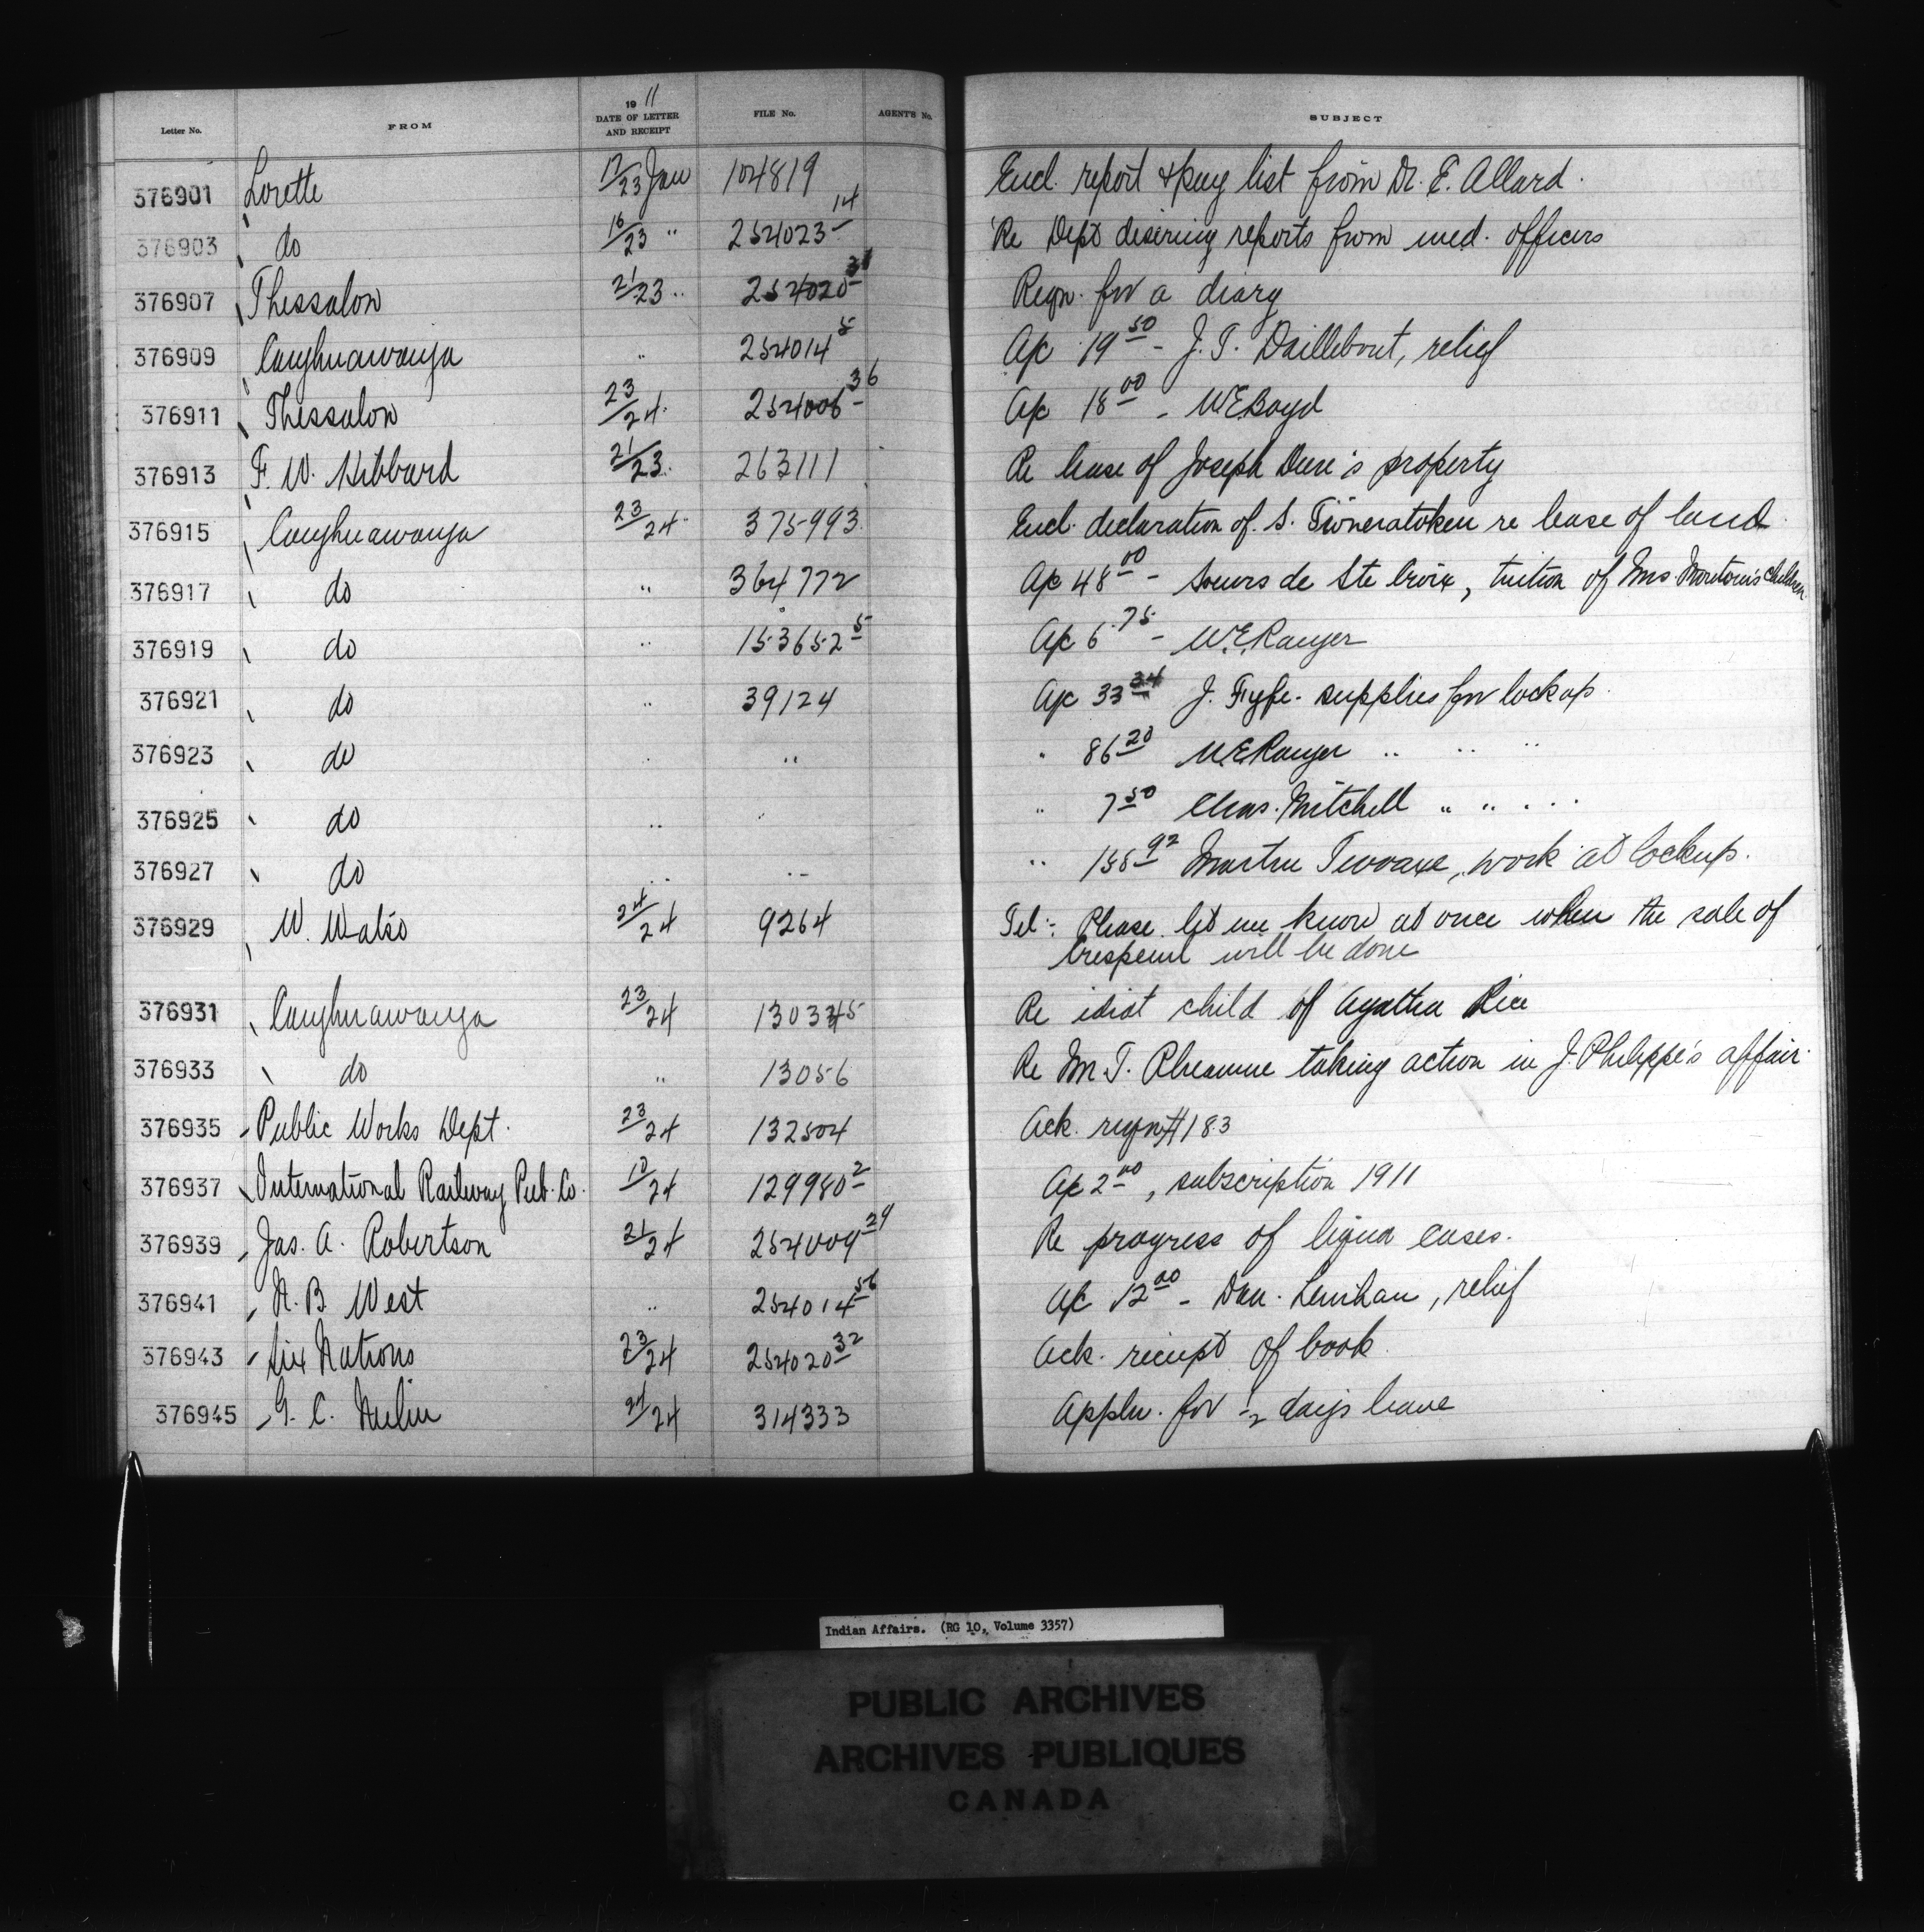 Letter No. FROM 1911 DATE OF LETTER AND RECEIPT FILE No. AGENT'S No. SUBJECT
376901 Lorette 17/23 Jan 104819 Encl. report & pay list from Dr. E. Allard.
376903 do 16/23 " 254023-14 Re Dept desiring reports from med. officers
376907 Thessalon 21/23 " 254020-31 Reqn. for a diary
376909 Caughnawauga " 254014-5 A/c 19.50 - J. T. Daillebout, relief
376911 Thessalon 23/24 254006-36 A/c 18.00 - W E Boyd
376913 F. W. Hibbard 21/23 263111 Re lease of Joseph Dure's property
376915 Caughnawauga 23/24 375993 Encl. declaration of S. re lease of land
376917 do " 364772 A/c 48.00 - Soeurs de Ste Croix, tuition of Mrs. children
376919 do " 153652-5 A/c 6.75 - W. E. Ranger
376921 do " 39124 A/c 33 J. Fyfe - supplies for lockup.
376923 do " " " 86.20 W. E. Ranger " " "
376925 do " " " 7.50 Chas. Mitchell " " " "
376927 do " " " 158.92 work at lockup.
376929 W. Watso 24/24 9264 Tel: Please let me know at once when the sale of
will be done
376931 Caughnawauga 23/24 130345 Re idiot child of Agatha Rice
376933 do " 13056 Re M. T. taking action in J. Philippe's affair.
376935 Public Works Dept. 23/24 132504 Ack. reqn #183
376937 International Railway Pub. Co. 10/24 129980-2 A/c 2.00, subscription 1911
376939 Jas. A. Robertson 21/24 254009-29 Re progress of liquor cases.
376941 N. B. West " 254014-56 A/c 12.00 - Dan. Lenihan, relief
376943 Six Nations 23/24 254020-32 Ack. receipt of book.
376945 G. C. 24/24 314333 Appln. for 1/2 days leave
Indian Affairs. (RG 10, Volume 3357)
PUBLIC ARCHIVES
ARCHIVES PUBLIQUES
CANADA